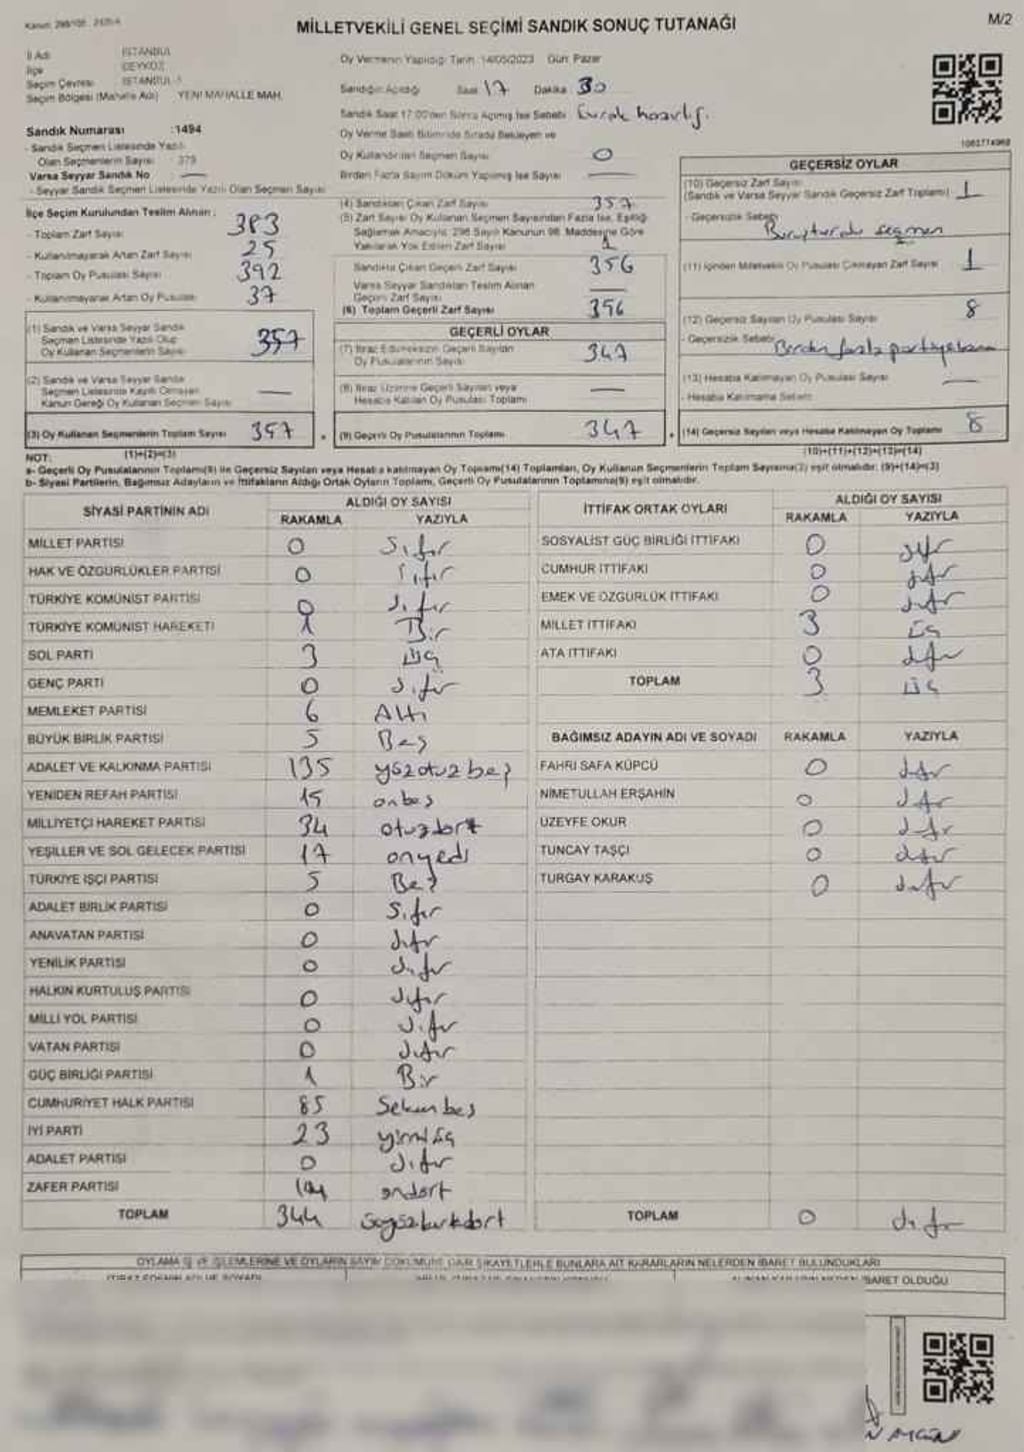 MİLLETVEKİLİ GENEL SEÇİMİ SANDIK SONUÇ TUTANAĞI
M/2
İl Adı İSTANBUL
İlçe BEYKOZ
Seçim Çevresi İSTANBUL-1
Seçim Bölgesi (Mahalle Adı) YENİ MAHALLE MAH.
Sandık Numarası :1494
- Sandık Seçmen Listesinde Yazılı
Olan Seçmenlerin Sayısı : 379
Varsa Seyyar Sandık No —
- Seyyar Sandık Seçmen Listesinde Yazılı Olan Seçmen Sayısı
Oy Vermenin Yapıldığı Tarih: 14/05/2023 Gün: Pazar
Sandığın Açıldığı Saat 17 Dakika 30
Sandık Saat 17:00'den Sonra Açılmış İse Sebebi Evrak hazırlığı.
Oy Verme Saati Bitiminde Sırada Bekleyen ve
Oy Kullandırılan Seçmen Sayısı 0
Birden Fazla Sayım Döküm Yapılmış İse Sayısı —
1063774968
İlçe Seçim Kurulundan Teslim Alınan :
- Toplam Zarf Sayısı 383
- Kullanılmayarak Artan Zarf Sayısı 25
- Toplam Oy Pusulası Sayısı 392
- Kullanılmayarak Artan Oy Pusulası 37
(1) Sandık ve Varsa Seyyar Sandık
Seçmen Listesinde Yazılı Olup
Oy Kullanan Seçmenlerin Sayısı 357
(2) Sandık ve Varsa Seyyar Sandık
Seçmen Listesinde Kayıtlı Olmayan
Kanun Gereği Oy Kullanan Seçmen Sayısı —
(3) Oy Kullanan Seçmenlerin Toplam Sayısı 357
(1)+(2)=(3)
(4) Sandıktan Çıkan Zarf Sayısı 357
(5) Zarf Sayısı Oy Kullanan Seçmen Sayısından Fazla İse, Eşitliği
Sağlamak Amacıyla; 298 Sayılı Kanunun 98. Maddesine Göre
Yakılarak Yok Edilen Zarf Sayısı 1
Sandıkta Çıkan Geçerli Zarf Sayısı 356
Varsa Seyyar Sandıktan Teslim Alınan
Geçerli Zarf Sayısı —
(6) Toplam Geçerli Zarf Sayısı 356
GEÇERLİ OYLAR
(7) İtiraz Edilmeksizin Geçerli Sayılan
Oy Pusulalarının Sayısı 347
(8) İtiraz Üzerine Geçerli Sayılan veya
Hesaba Katılan Oy Pusulası Toplamı —
(9) Geçerli Oy Pusulalarının Toplamı 347
GEÇERSİZ OYLAR
(10) Geçersiz Zarf Sayısı
(Sandık ve Varsa Seyyar Sandık Geçersiz Zarf Toplamı) 1
- Geçersizlik Sebebi Buruşturdu seçmen
(11) İçinden Milletvekili Oy Pusulası Çıkmayan Zarf Sayısı 1
(12) Geçersiz Sayılan Oy Pusulası Sayısı 8
- Geçersizlik Sebebi Birden fazla partiye basma
(13) Hesaba Katılmayan Oy Pusulası Sayısı —
- Hesaba Katılmama Sebebi
(14) Geçersiz Sayılan veya Hesaba Katılmayan Oy Toplamı 8
(10)+(11)+(12)+(13)=(14)
NOT:
a- Geçerli Oy Pusulalarının Toplamı(9) ile Geçersiz Sayılan veya Hesaba katılmayan Oy Toplamı(14) Toplamları, Oy Kullanan Seçmenlerin Toplam Sayısına(3) eşit olmalıdır. (9)+(14)=(3)
b- Siyasi Partilerin, Bağımsız Adayların ve İttifakların Aldığı Ortak Oyların Toplamı, Geçerli Oy Pusulalarının Toplamına(9) eşit olmalıdır.
SİYASİ PARTİNİN ADI ALDIĞI OY SAYISI
RAKAMLA YAZIYLA
MİLLET PARTİSİ 0 Sıfır
HAK VE ÖZGÜRLÜKLER PARTİSİ 0 Sıfır
TÜRKİYE KOMÜNİST PARTİSİ 0 Sıfır
TÜRKİYE KOMÜNİST HAREKETİ 1 Bir
SOL PARTİ 3 üç
GENÇ PARTİ 0 Sıfır
MEMLEKET PARTİSİ 6 Altı
BÜYÜK BİRLİK PARTİSİ 5 Beş
ADALET VE KALKINMA PARTİSİ 135 yüzotuzbeş
YENİDEN REFAH PARTİSİ 15 onbeş
MİLLİYETÇİ HAREKET PARTİSİ 34 otuzdört
YEŞİLLER VE SOL GELECEK PARTİSİ 17 onyedi
TÜRKİYE İŞÇİ PARTİSİ 5 Beş
ADALET BİRLİK PARTİSİ 0 Sıfır
ANAVATAN PARTİSİ 0 Sıfır
YENİLİK PARTİSİ 0 Sıfır
HALKIN KURTULUŞ PARTİSİ 0 Sıfır
MİLLİ YOL PARTİSİ 0 Sıfır
VATAN PARTİSİ 0 Sıfır
GÜÇ BİRLİĞİ PARTİSİ 1 Bir
CUMHURİYET HALK PARTİSİ 85 Seksenbeş
İYİ PARTİ 23 yirmiüç
ADALET PARTİSİ 0 Sıfır
ZAFER PARTİSİ 14 ondört
TOPLAM 344
İTTİFAK ORTAK OYLARI ALDIĞI OY SAYISI
RAKAMLA YAZIYLA
SOSYALİST GÜÇ BİRLİĞİ İTTİFAKI 0 sıfır
CUMHUR İTTİFAKI 0 sıfır
EMEK VE ÖZGÜRLÜK İTTİFAKI 0 sıfır
MİLLET İTTİFAKI 3 üç
ATA İTTİFAKI 0 sıfır
TOPLAM 3 üç
BAĞIMSIZ ADAYIN ADI VE SOYADI RAKAMLA YAZIYLA
FAHRİ SAFA KÜPCÜ 0 sıfır
NİMETULLAH ERŞAHİN 0 sıfır
ÜZEYFE OKUR 0 sıfır
TUNCAY TAŞÇI 0 sıfır
TURGAY KARAKUŞ 0 sıfır
TOPLAM 0 sıfır
OYLAMA İŞ VE İŞLEMLERİNE VE OYLARIN SAYIM DÖKÜMÜNE DAİR ŞİKAYETLERLE BUNLARA AİT KARARLARIN NELERDEN İBARET BULUNDUKLARI
İBARET OLDUĞU